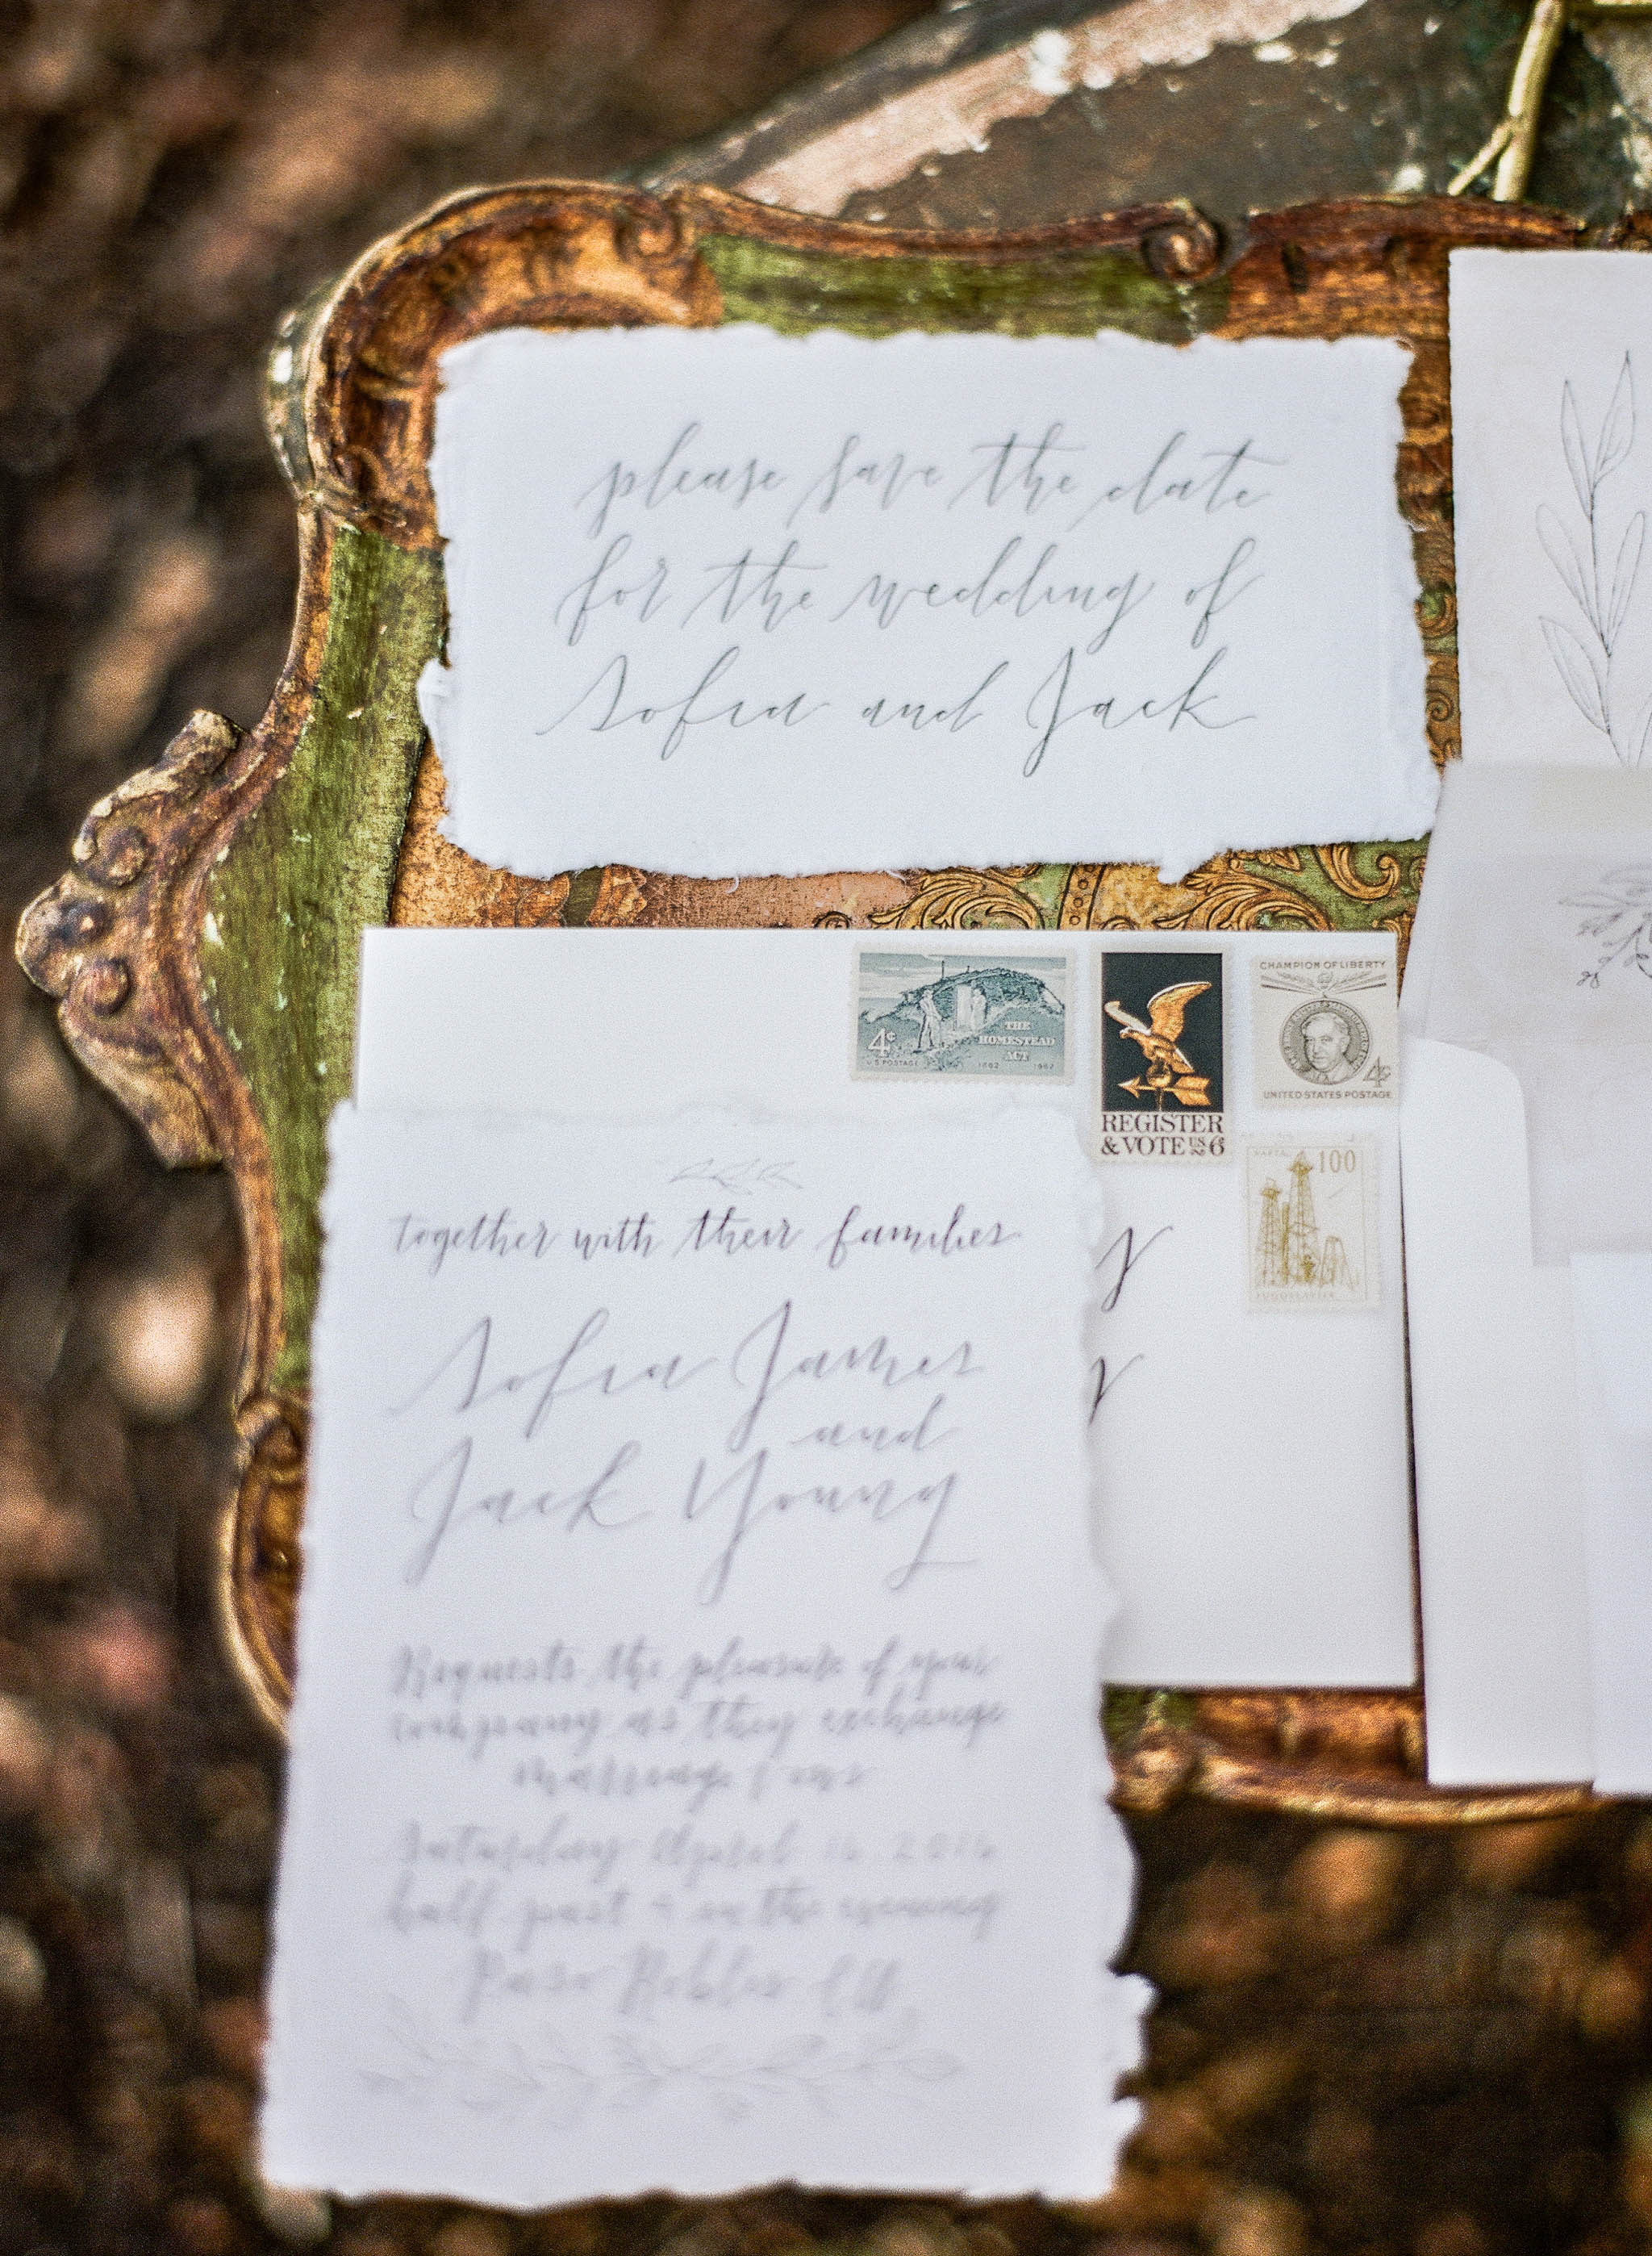 please save the date
for the wedding of
Sofia and Jack
4¢
U.S. POSTAGE
THE
HOMESTEAD
ACT
1862 1962
REGISTER
& VOTE US 6
CHAMPION OF LIBERTY
4¢
UNITED STATES POSTAGE
100
JUGOSLAVIJA
together with their families
Sofia James
and
Jack Young
Requests the pleasure of your
company as they exchange
marriage
Saturday April
half past in the evening
Paso Robles CA